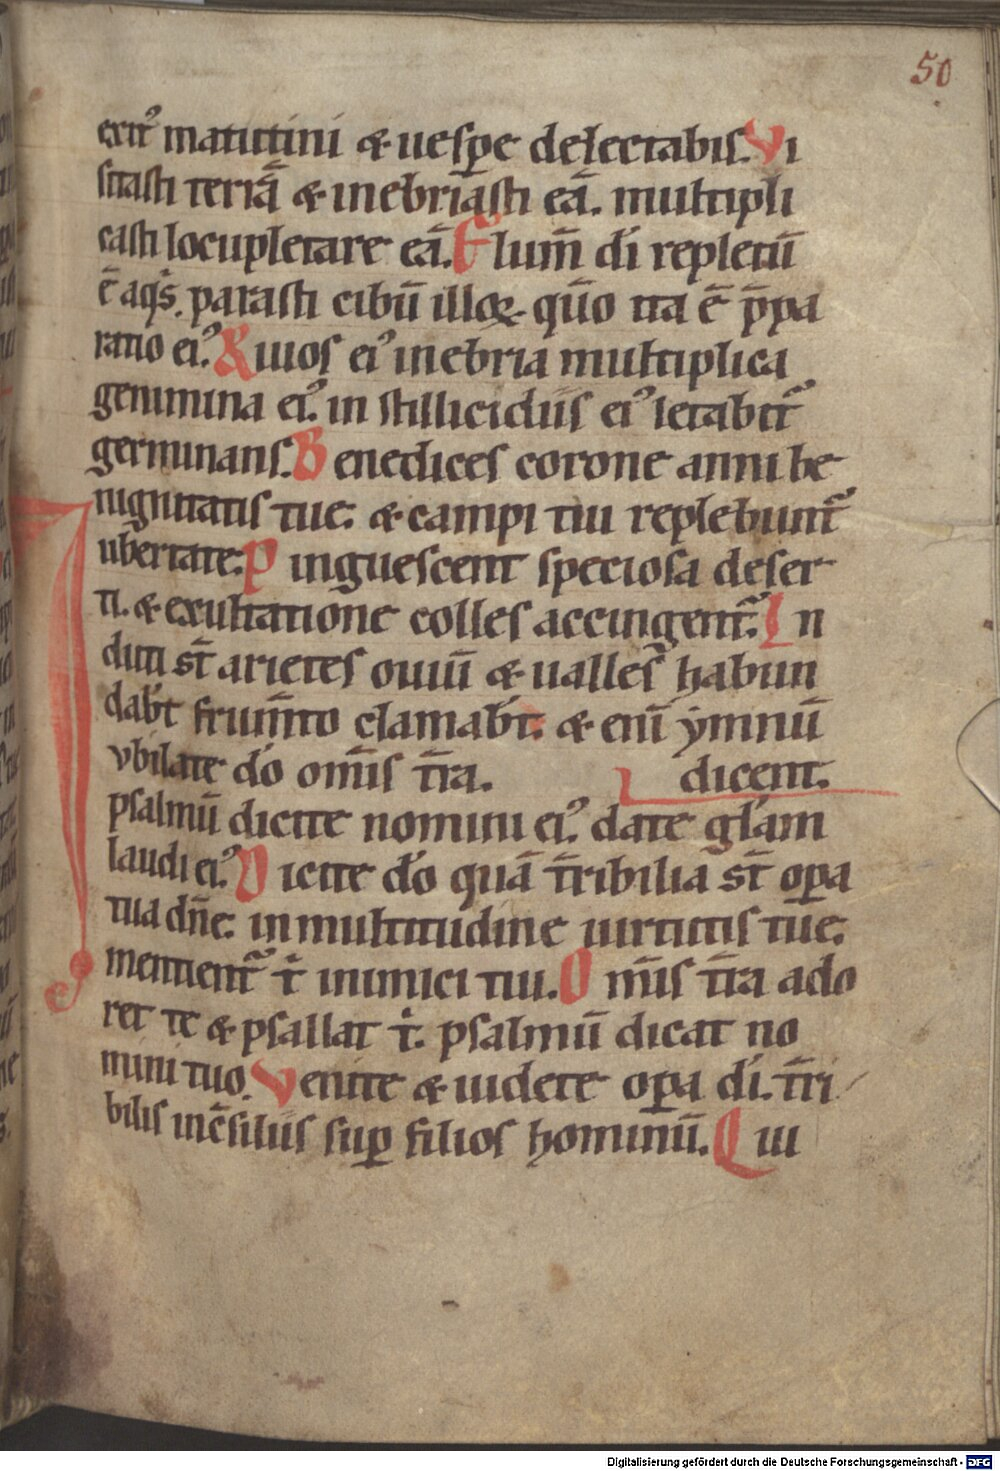 50
exit᾽ matutini & uesꝑe delectabis. Vi
sitasti terrā & inebriasti eā. multipli
casti locupletare eā. Flum̄ di repletū
ē aqͥs. parasti cibū illoꝝ. qm̄o ita ē p̄pa
ratio ei᾽. Riuos ei᾽ inebria multiplica
genimina ei᾽. in stillicidiis ei᾽ letabit᾽
germinans. Benedices corone anni be
nignitatis tue. & campi tui replebunt᾽
ubertate. Pinguescent speciosa deser
ti. & exultatione colles accingent᾽. In
duti st̄ arietes ouiū & ualles habun
dabt̄ frum̄to clamabt̄. & enī ymnū
vbilate do om̄is t̄ra. dicent.
psalmū dicite nomini ei᾽. date gl̄am
laudi ei᾽. Dicite do quā t̄ribilia st̄ oꝑa
tua dn̄e. in multitudine uirtutis tue.
mentient᾽ tͥ inimici tui. Om̄is t̄ra ado
ret te & psallat tͥ. psalmū dicat no
mini tuo. Venite & uidete oꝑa di. t̄ri
bilis in c̄siliis suꝑ filios hominū. Qui
Digitalisierung gefördert durch die Deutsche Forschungsgemeinschaft - DFG